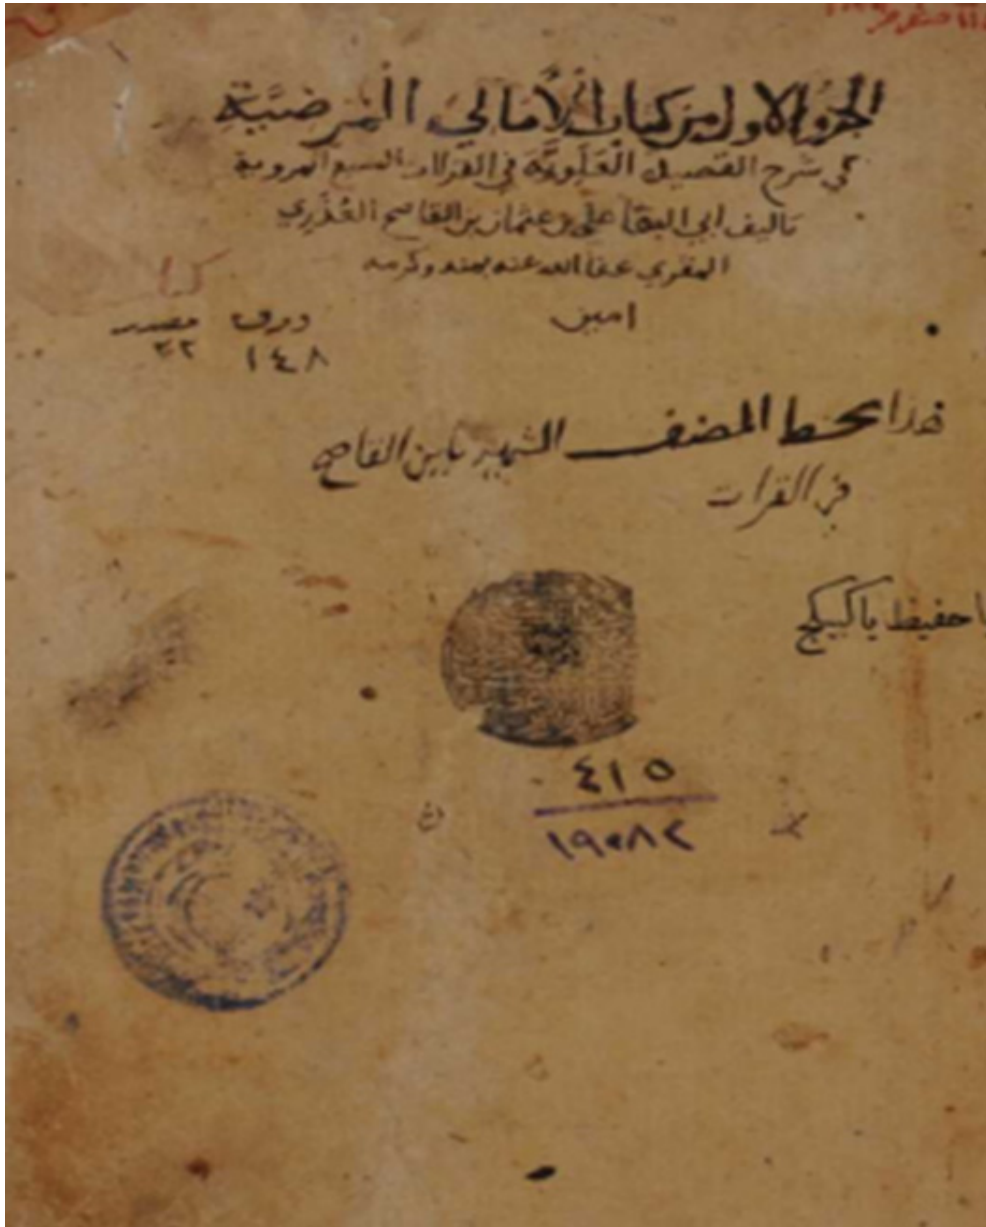 الجزو الاول من كتاب الأمالي المرضية
في شرح القصيد العلوية في القراات السبع المروية
تاليف ابي البقا علي بن عثمان بن القاصح العذري
المقري عفا الله عنه بمنه وكرمه
امين
ورق
١٤٨
٢٢
هذا بخط المصنف الشهير بابن القاصح
في القرات
يا حفيظ ياكبيكج
٤١٥
١٩٠٨٢